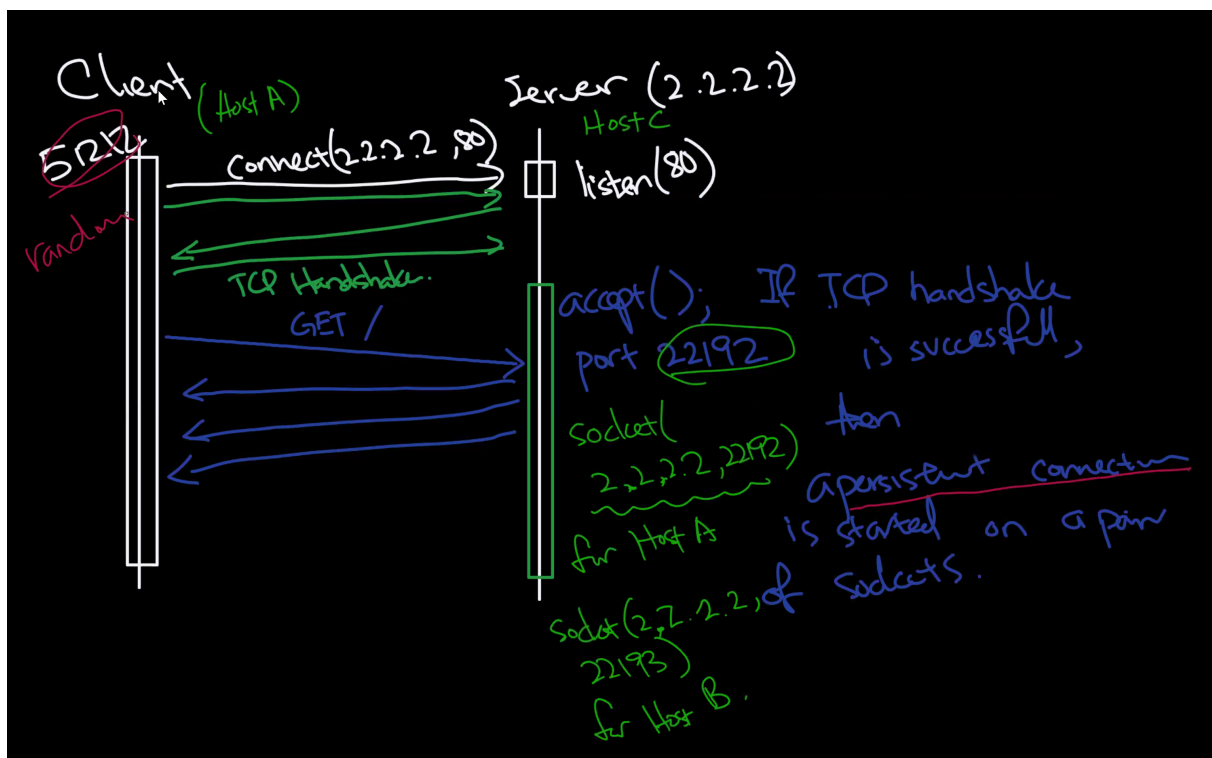 Client
(Host A)
Server (2.2.2.2)
Host C
connect(2.2.2.2,80)
listen(80)
random
TCP Handshake.
GET /
accept();
port 22192
If TCP handshake
is successfull,
then
a persistent connection
is started on a pair
of sockets.
socket(
2.2.2.2,22192)
for Host A
socket(2.2.2.2,
22193)
for Host B.